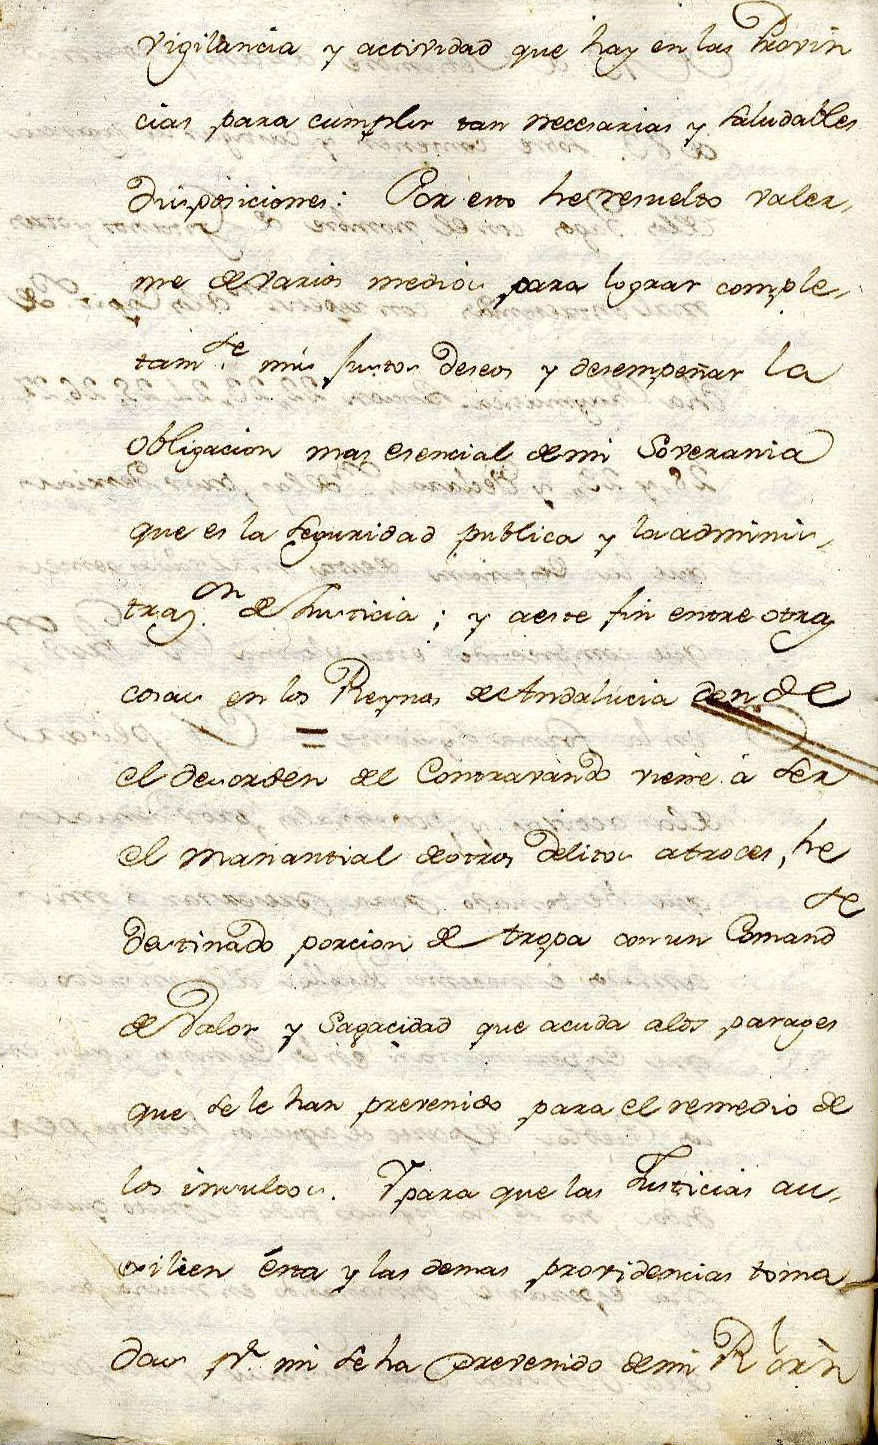 vigilancia y actividad que hay en las Provin
cias para cumplir tan necesarias y saludables
disposiciones: Por esto he resuelto valer-
me de varios medios para lograr comple-
tam.te mis justos deseos y desempeñar la
obligacion mas esencial de mi Soverania
que es la seguridad publica y la adminis-
traz.on de Justicia; y a este fin entre otras
cosas en los Reynos de Andalucia donde
=
el desorden del Contravando viene á ser
el manantial de otros delitos atroces, he
destinado porcion de tropa con un Comand.te
de Valor y Sagacidad que acuda a los parages
que se le han prevenido para el remedio de
los insultos. Y para que las Justicias au-
xilien ésta y las demas providencias toma
das pr. mi se ha prevenido de mi Rl orñ